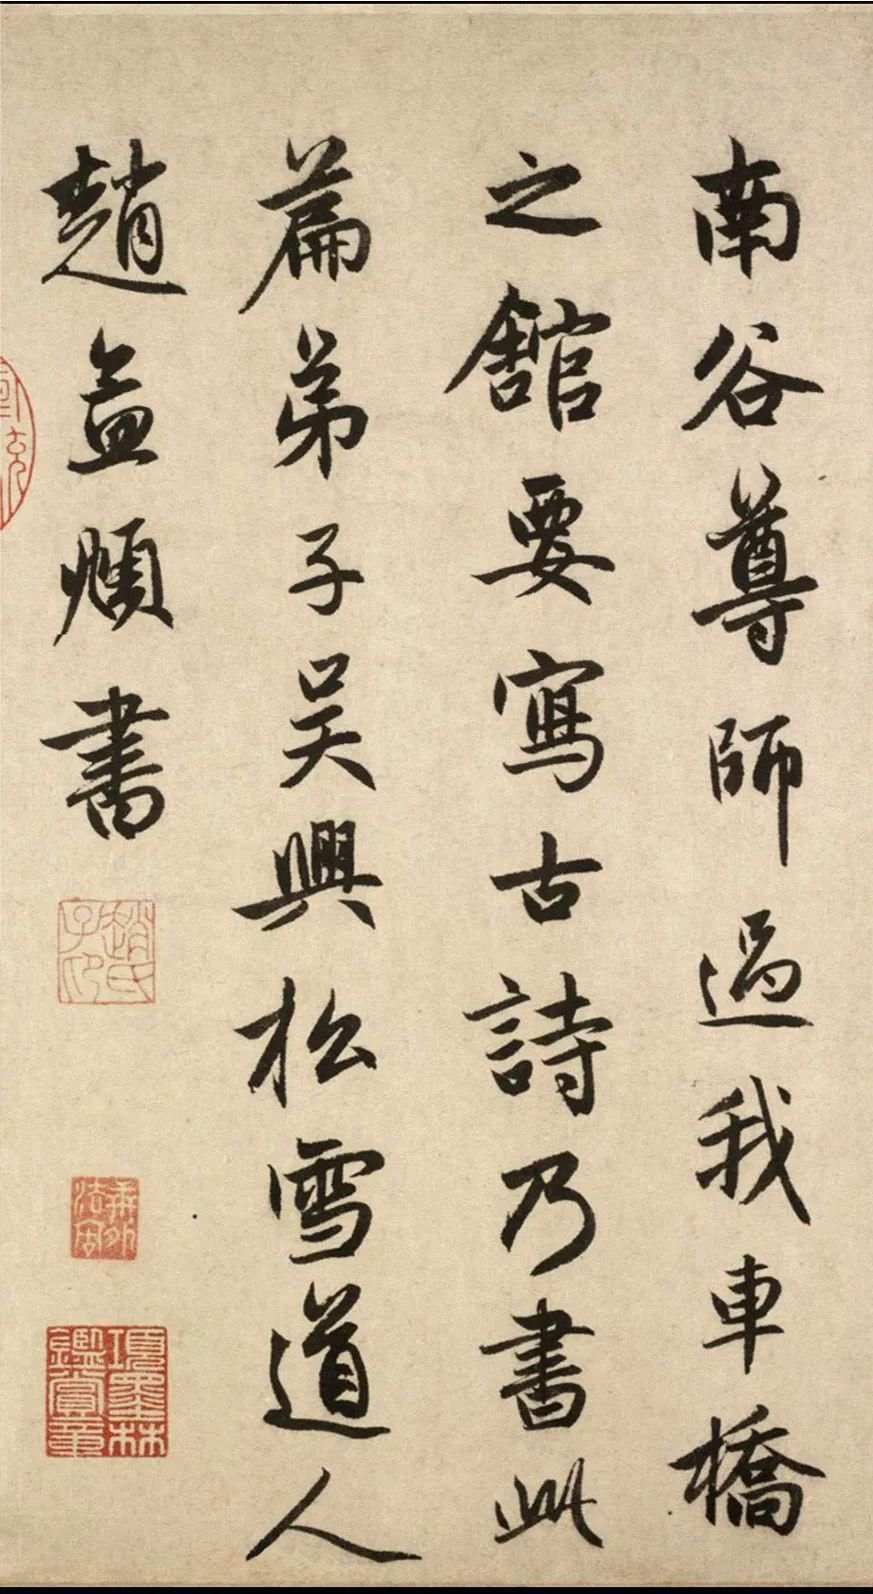 南谷尊師過我車橋
之舘要寫古詩乃書此
篇弟子吴興松雪道人
趙孟頫書
趙氏子昂
項墨林鑑賞章